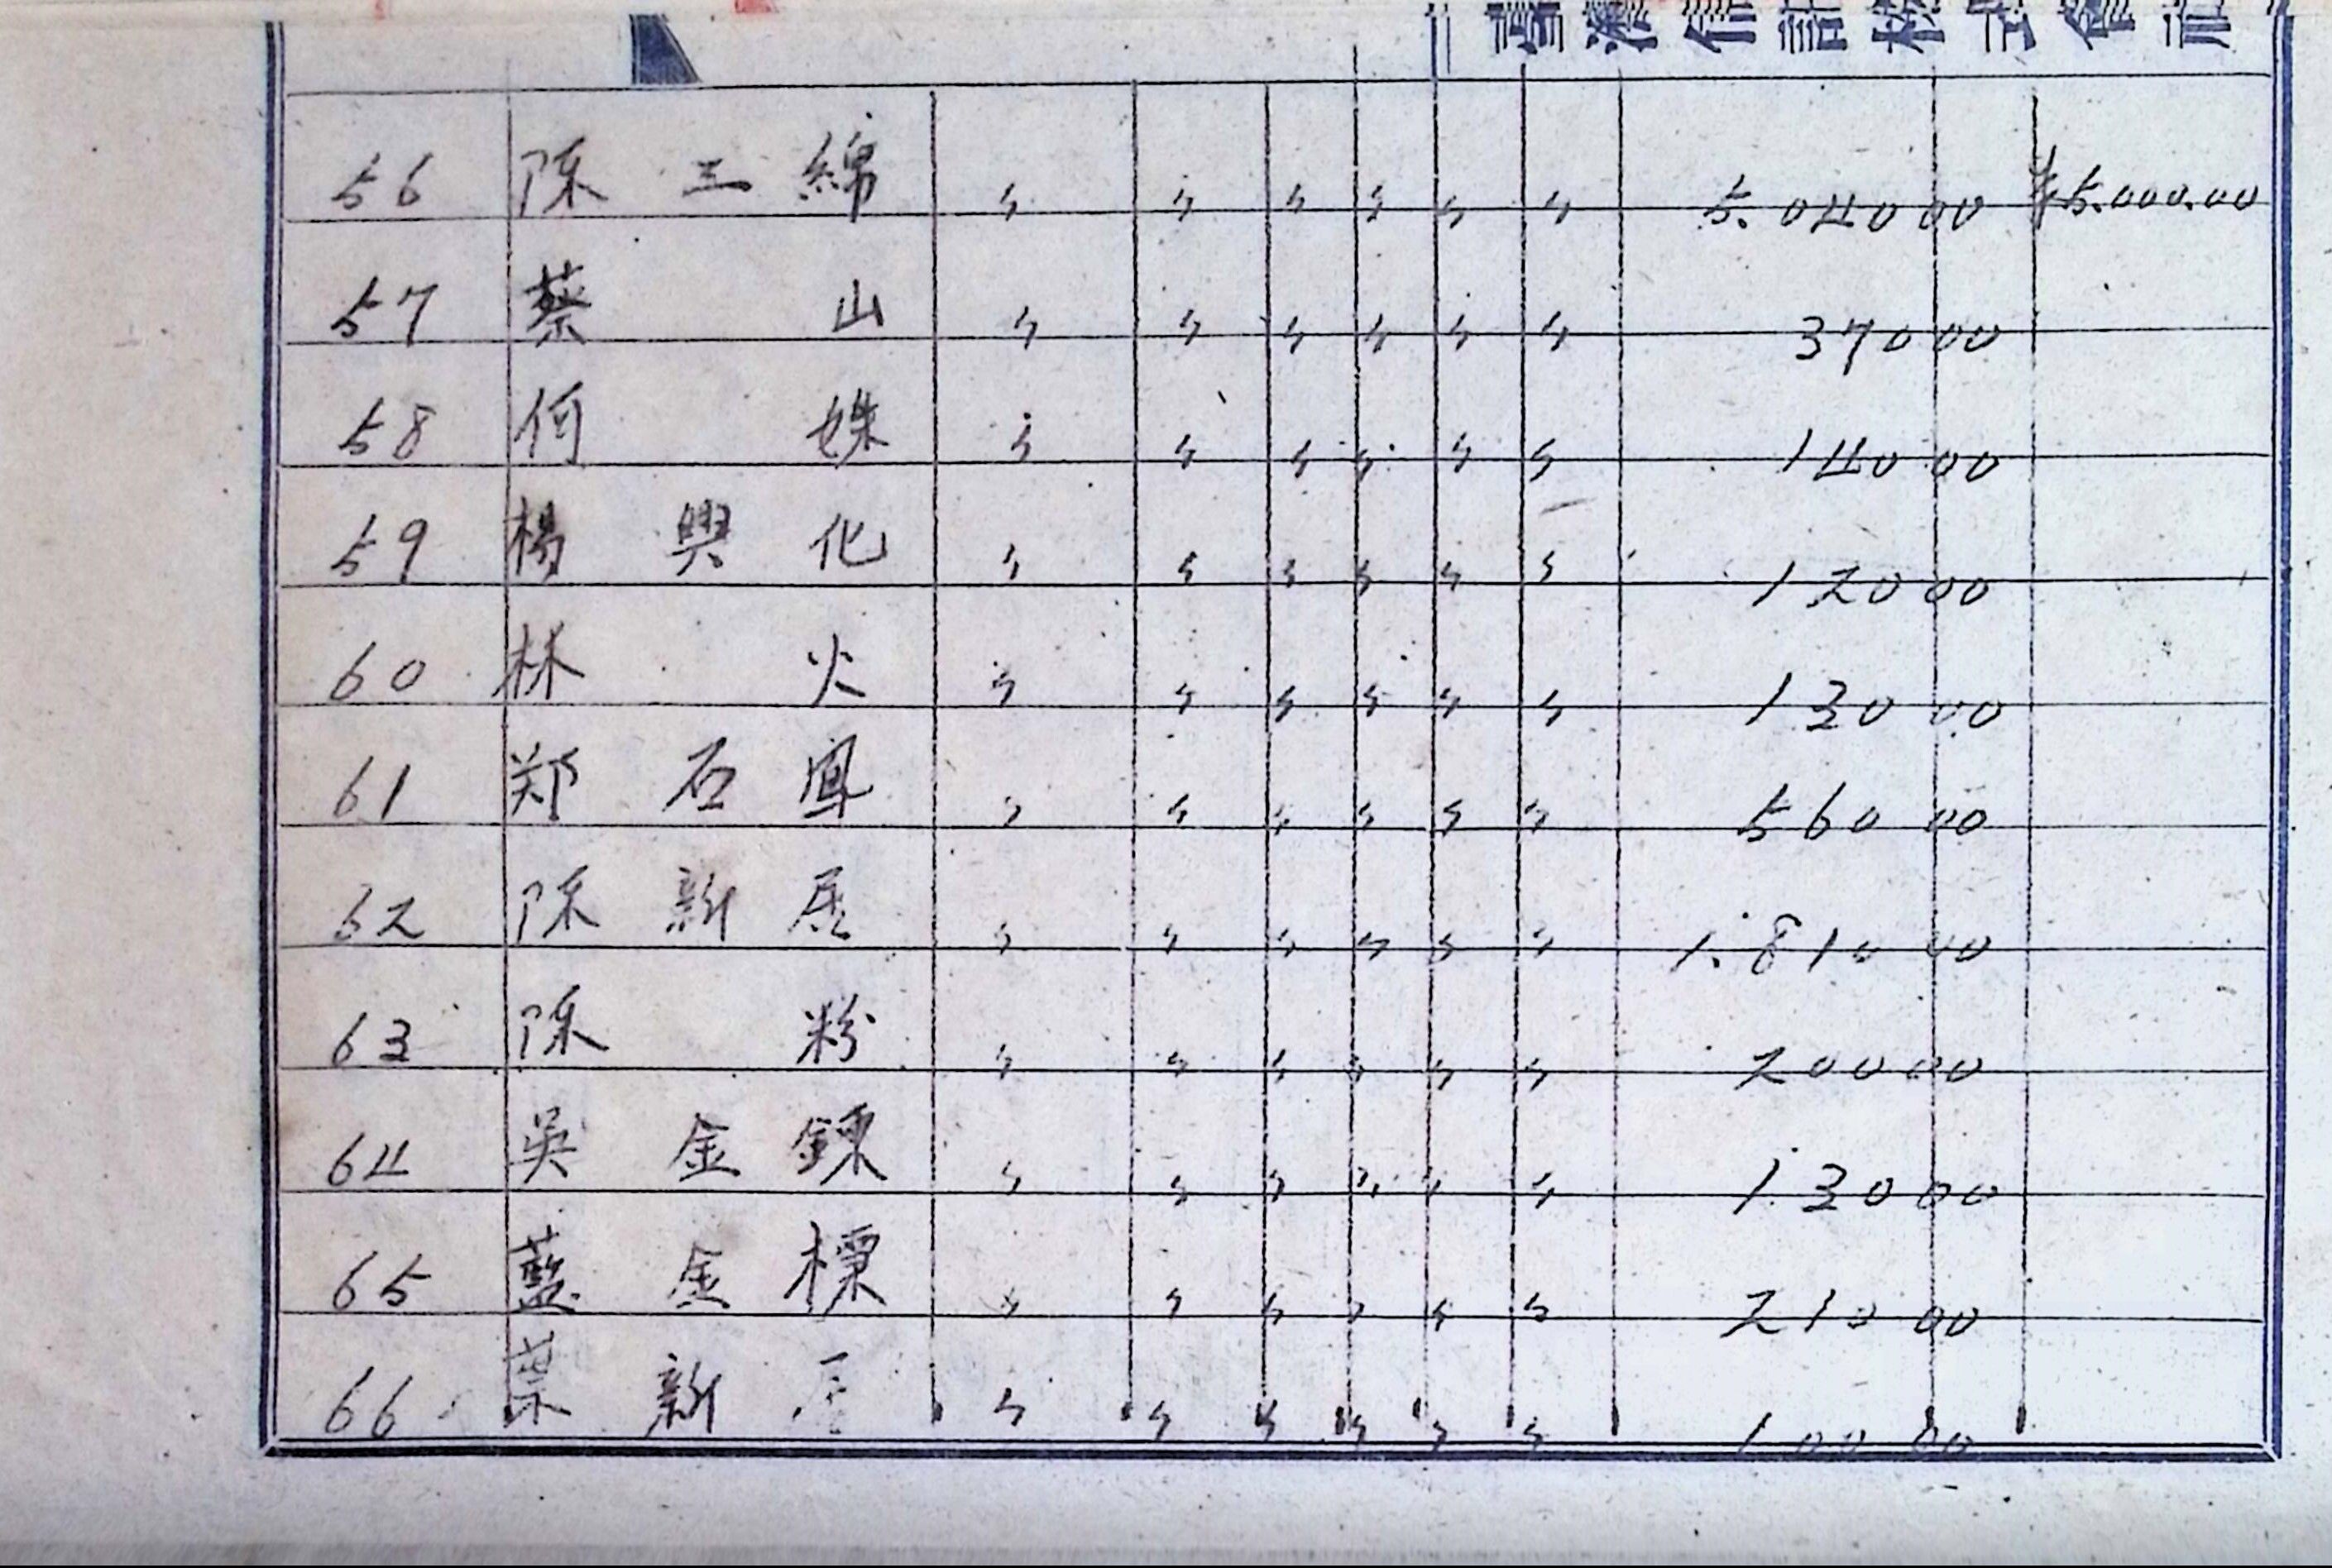 56 陳三綿 〃 〃 〃 〃 〃 〃 5.040 00 ¥5.000.00
57 蔡山 〃 〃 〃 〃 〃 〃 370 00
58 何姝 〃 〃 〃 〃 〃 〃 140 00
59 楊興化 〃 〃 〃 〃 〃 〃 120 00
60 林火 〃 〃 〃 〃 〃 〃 130 00
61 郑石鳳 〃 〃 〃 〃 〃 〃 560 00
62 陳新居 〃 〃 〃 〃 〃 〃 1.810 00
63 陳粉 〃 〃 〃 〃 〃 〃 200 00
64 吳金鍊 〃 〃 〃 〃 〃 〃 130 00
65 藍金標 〃 〃 〃 〃 〃 〃 210 00
66 葉新 〃 〃 〃 〃 〃 〃 100 00